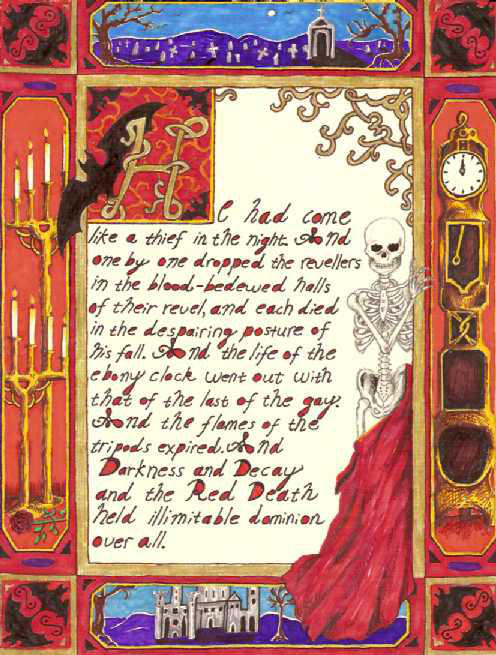 He had come
like a thief in the night. And
one by one dropped the revellers
in the blood-bedewed halls
of their revel, and each died
in the despairing posture of
his fall. And the life of the
ebony clock went out with
that of the last of the gay.
And the flames of the
tripods expired. And
Darkness and Decay
and the Red Death
held illimitable dominion
over all.